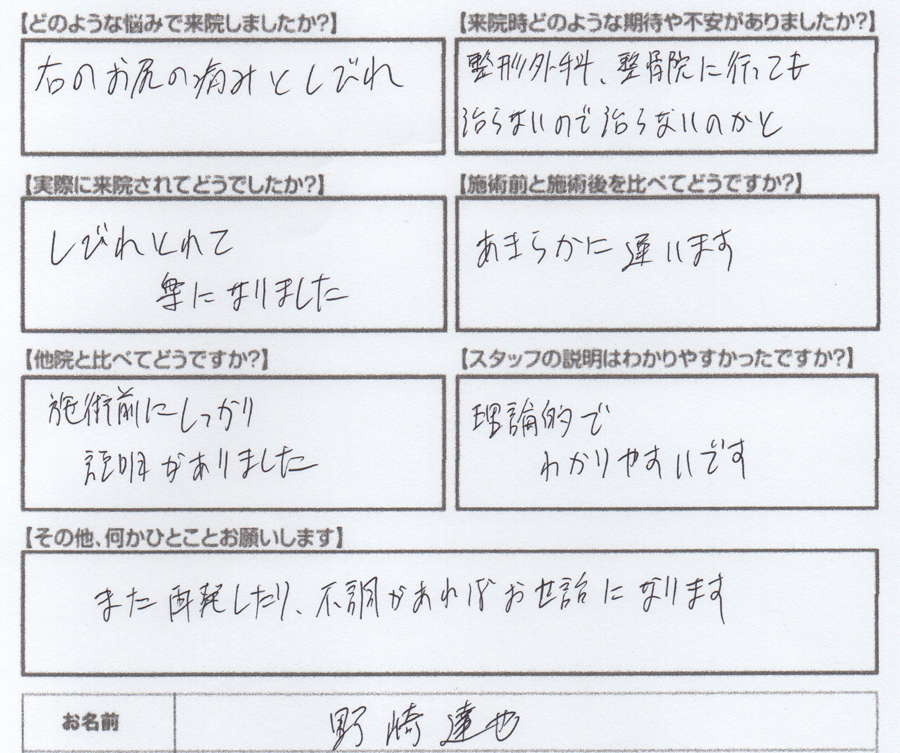 【どのような悩みで来院しましたか?】
右のお尻の痛みとしびれ
【来院時どのような期待や不安がありましたか?】
整形外科、整骨院に行っても
治らないので治らないのかと
【実際に来院されてどうでしたか?】
しびれとれて
楽になりました
【施術前と施術後を比べてどうですか?】
あきらかに違います
【他院と比べてどうですか?】
施術前にしっかり
説明がありました
【スタッフの説明はわかりやすかったですか?】
理論的で
わかりやすいです
【その他、何かひとことお願いします】
また再発したり、不調があればお世話になります
お名前
野崎達也